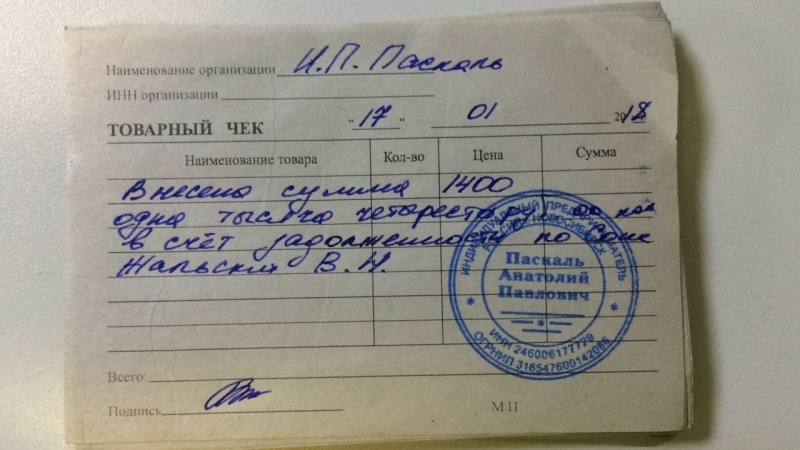 Наименование организации И.П. Паскаль
ИНН организации
ТОВАРНЫЙ ЧЕК "17" 01 2018
Наименование товара Кол-во Цена Сумма
Внесена сумма 1400
одна тысяча четыреста руб 00 коп
в счёт задолженности по
Жальских В.Н.
ИНДИВИДУАЛЬНЫЙ ПРЕДПРИНИМАТЕЛЬ
НОВОСИБИРСК
Паскаль
Анатолий
Павлович
ИНН 246006177729
ОГРНИП 316547600142086
Всего:
Подпись
М.П